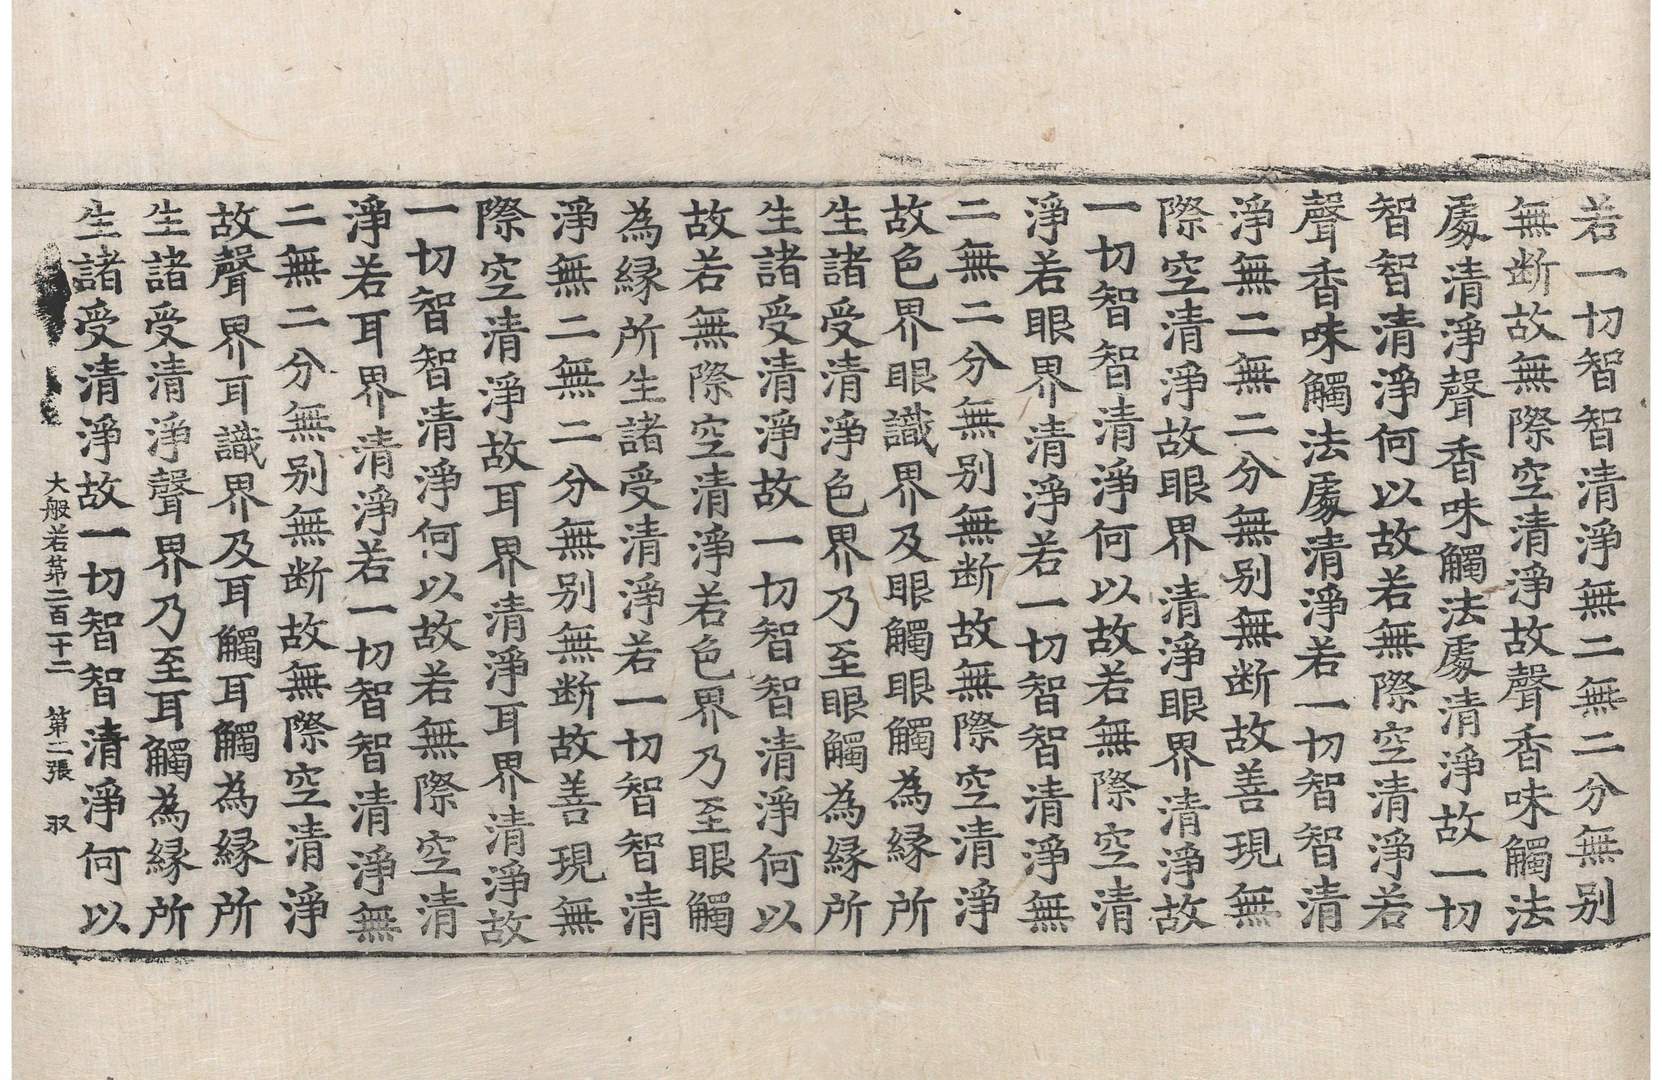 若一切智智清淨無二無二分無别
無断故無際空清淨故聲香味觸法
處清淨聲香味觸法處清淨故一切
智智清淨何以故若無際空清淨若
聲香味觸法處清淨若一切智智清
淨無二無二分無别無断故善現無
際空清淨故眼界清淨眼界清淨故
一切智智清淨何以故若無際空清
淨若眼界清淨若一切智智清淨無
二無二分無别無断故無際空清淨
故色界眼識界及眼觸眼觸為縁所
生諸受清淨色界乃至眼觸為縁所
生諸受清淨故一切智智清淨何以
故若無際空清淨若色界乃至眼觸
為縁所生諸受清淨若一切智智清
淨無二無二分無别無断故善現無
際空清淨故耳界清淨耳界清淨故
一切智智清淨何以故若無際空清
淨若耳界清淨若一切智智清淨無
二無二分無别無断故無際空清淨
故聲界耳識界及耳觸耳觸為縁所
生諸受清淨聲界乃至耳觸為縁所
生諸受清淨故一切智智清淨何以
大般若第二百一十二 第二張